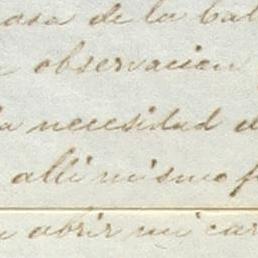 casa de la Cal
observacion
la necesidad d
alli mismo f
abrir mi car